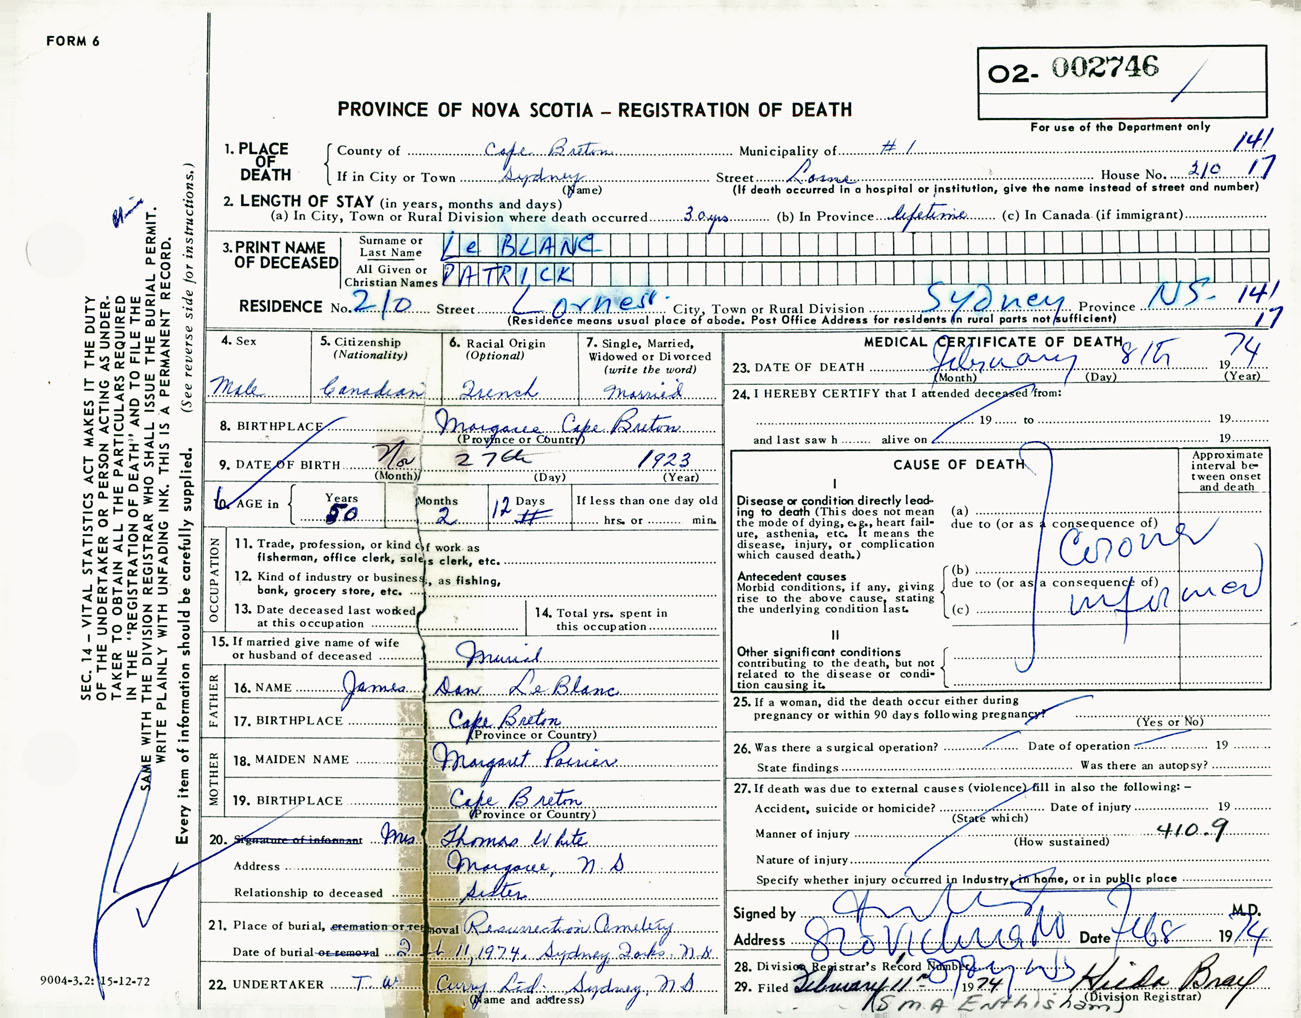 FORM 6
O2- 002746
PROVINCE OF NOVA SCOTIA – REGISTRATION OF DEATH
For use of the Department only
1. PLACE OF DEATH County of Cape Breton Municipality of #1 141
If in City or Town Sydney Street Lorne House No. 210 17
(Name) (If death occurred in a hospital or institution, give the name instead of street and number)
2. LENGTH OF STAY (in years, months and days)
(a) In City, Town or Rural Division where death occurred 30 yrs (b) In Province lifetime (c) In Canada (if immigrant)
3. PRINT NAME OF DECEASED Surname or Last Name Le BLANC
All Given or Christian Names PATRICK
RESIDENCE No. 210 Street Lorne St. City, Town or Rural Division Sydney Province NS- 141
(Residence means usual place of abode. Post Office Address for residents in rural parts not sufficient) 17
4. Sex 5. Citizenship (Nationality) 6. Racial Origin (Optional) 7. Single, Married, Widowed or Divorced (write the word)
Male Canadian French Married
8. BIRTHPLACE Margaree Cape Breton
(Province or Country)
9. DATE OF BIRTH No 27th 1923
(Month) (Day) (Year)
10. AGE in Years Months Days If less than one day old
50 2 12 hrs. or min.
OCCUPATION
11. Trade, profession, or kind of work as fisherman, office clerk, sales clerk, etc.
12. Kind of industry or business, as fishing, bank, grocery store, etc.
13. Date deceased last worked at this occupation
14. Total yrs. spent in this occupation
15. If married give name of wife or husband of deceased Murial
FATHER
16. NAME James Dan LeBlanc
17. BIRTHPLACE Cape Breton
(Province or Country)
MOTHER
18. MAIDEN NAME Margaret Poirier
19. BIRTHPLACE Cape Breton
(Province or Country)
20. Signature of informant Mrs Thomas White
Address Margaree, N S
Relationship to deceased Sister
21. Place of burial, cremation or removal Resurrection Cemetery
Date of burial or removal 11, 1974. Sydney Forks, N.S.
22. UNDERTAKER T. W. Curry Ltd. Sydney, N S
(Name and address)
MEDICAL CERTIFICATE OF DEATH
23. DATE OF DEATH February 8th 1974
(Month) (Day) (Year)
24. I HEREBY CERTIFY that I attended deceased from:
19 to 19
and last saw h alive on 19
CAUSE OF DEATH
Approximate interval between onset and death
I
Disease or condition directly leading to death (This does not mean the mode of dying, e.g., heart failure, asthenia, etc. It means the disease, injury, or complication which caused death.)
(a)
due to (or as a consequence of)
Antecedent causes
Morbid conditions, if any, giving rise to the above cause, stating the underlying condition last.
(b)
due to (or as a consequence of)
(c)
Coroner
informed
II
Other significant conditions
contributing to the death, but not related to the disease or condition causing it.
25. If a woman, did the death occur either during pregnancy or within 90 days following pregnancy?
(Yes or No)
26. Was there a surgical operation? Date of operation 19
State findings Was there an autopsy?
27. If death was due to external causes (violence) fill in also the following: –
Accident, suicide or homicide? Date of injury 19
(State which)
Manner of injury 410.9
(How sustained)
Nature of injury
Specify whether injury occurred in Industry, in home, or in public place
Signed by M.D.
Address Date Feb 8 1974
28. Division Registrar's Record Number
29. Filed February 11th 1974 Hilda Bray
(Division Registrar)
(SMA Enthisham)
SEC. 14 – VITAL STATISTICS ACT MAKES IT THE DUTY
OF THE UNDERTAKER OR PERSON ACTING AS UNDER-
TAKER TO OBTAIN ALL THE PARTICULARS REQUIRED
IN THE "REGISTRATION OF DEATH" AND TO FILE THE
SAME WITH THE DIVISION REGISTRAR WHO SHALL ISSUE THE BURIAL PERMIT.
WRITE PLAINLY WITH UNFADING INK. THIS IS A PERMANENT RECORD.
Every item of information should be carefully supplied. (See reverse side for instructions.)
9004-3.2: 15-12-72